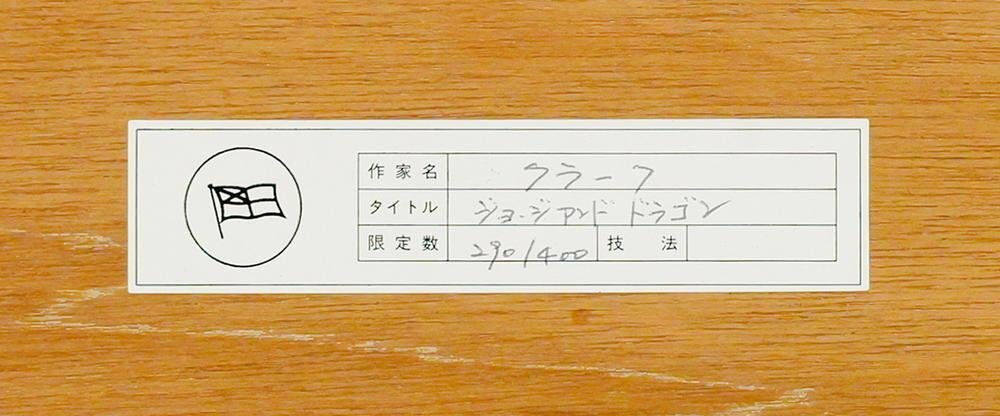 作家名 クラーク
タイトル ジョージアンドドラゴン
限定数 290/400 技法